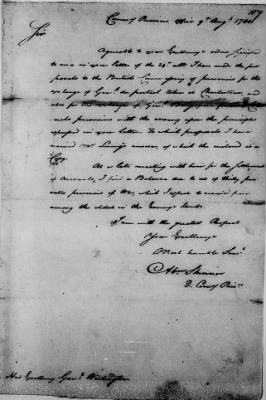 Sir
Agreeable to your Excellency's orders signified
to me in your letter of the 24th ult I have made the pro
posals to the British Commissary of prisoners for the
exchange of Gen^l the
also for the exchange of Gen^l
prisoners with the enemy upon the principles
in your letter. To which proposals I have
received Mr Loring's answer, of which the inclosed is a
Copy
At a late meeting with him for the settlement
of Accounts, I find a Balance due to us of thirty
prisoners of War, which I expect to receive from
among the oldest in the Enemy's hands.
I am with the greatest Respect
Your Excellency's
Most humble Serv^t
Abm Skinner
D. Com^y Pris^rs
His Excellency Gen^l Washington